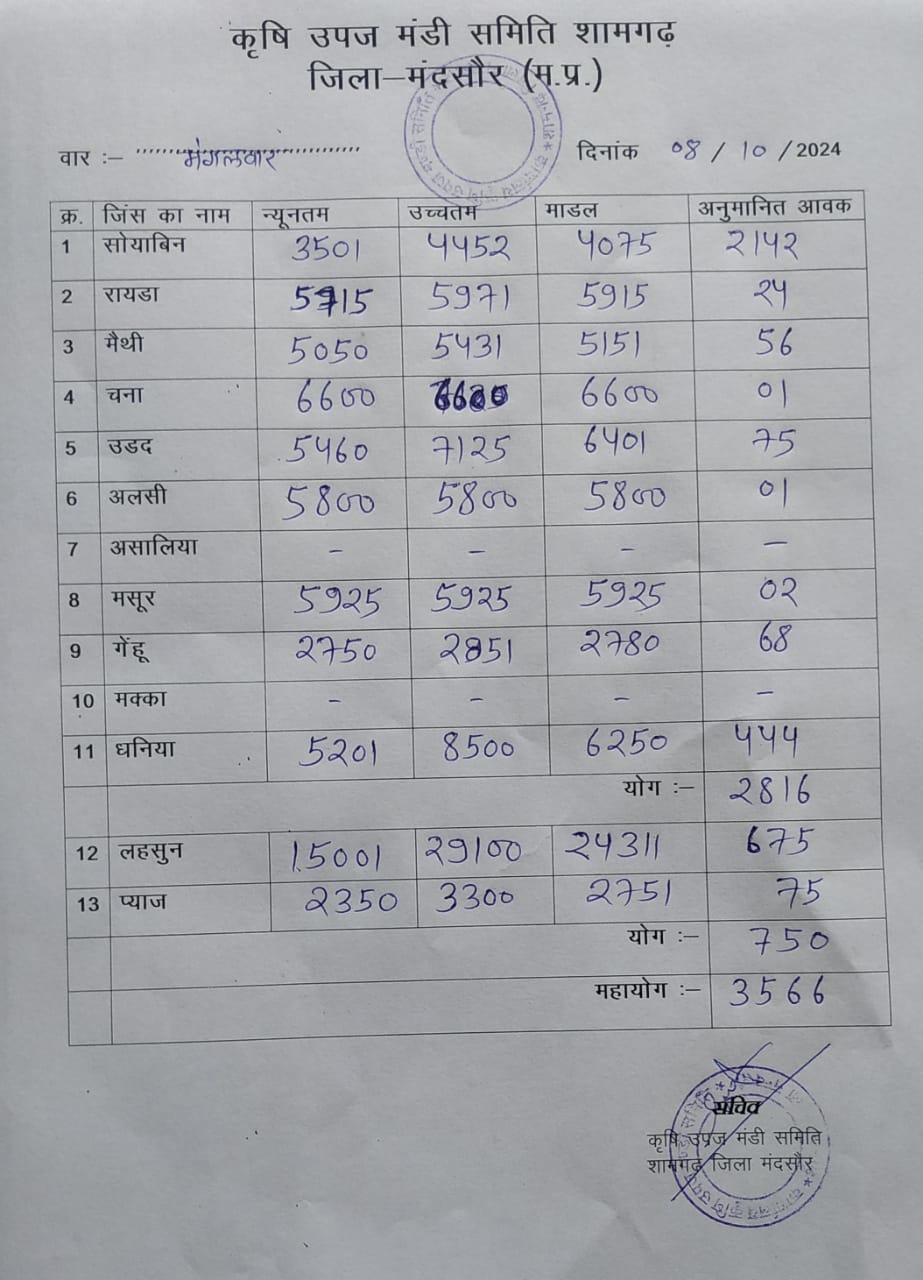 कृषि उपज मंडी समिति शामगढ़
जिला–मंदसौर (म.प्र.)
वार :– मंगलवार दिनांक 08 / 10 / 2024
क्र. जिंस का नाम न्यूनतम उच्चतम माडल अनुमानित आवक
1 सोयाबिन 3501 4452 4075 2142
2 रायडा 5715 5971 5915 24
3 मैथी 5050 5431 5151 56
4 चना 6600 6600 6600 01
5 उडद 5460 7125 6401 75
6 अलसी 5800 5800 5800 01
7 असालिया – – – –
8 मसूर 5925 5925 5925 02
9 गेंहू 2750 2851 2780 68
10 मक्का – – – –
11 धनिया 5201 8500 6250 444
योग :– 2816
12 लहसुन 15001 29100 24311 675
13 प्याज 2350 3300 2751 75
योग :– 750
महायोग :– 3566
सचिव
कृषि उपज मंडी समिति
शामगढ़ जिला मंदसौर